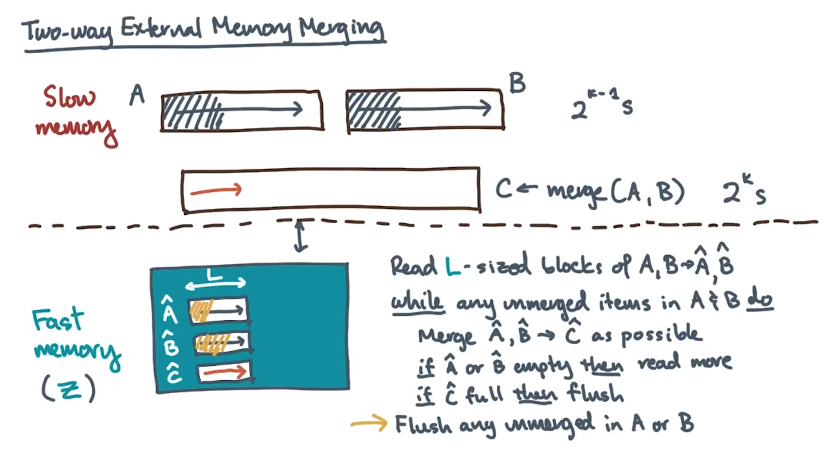 Two-way External Memory Merging
Slow
memory
A
B
2^{k-1}s
C ← merge(A, B) 2^k s
Fast
memory
(Z)
L
Â
B̂
Ĉ
Read L-sized blocks of A, B → Â, B̂
while any unmerged items in A & B do
Merge Â, B̂ → Ĉ as possible
if  or B̂ empty then read more
if Ĉ full then flush
→ Flush any unmerged in A or B